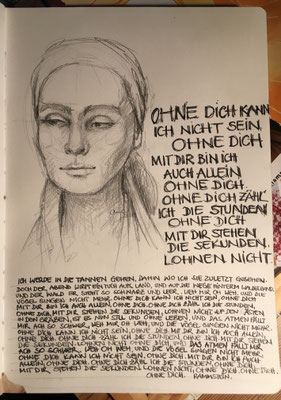 OHNE DICH KANN
ICH NICHT SEIN.
OHNE DICH
MIT DIR BIN ICH
AUCH ALLEIN
OHNE DICH.
OHNE DICH ZÄHL
ICH DIE STUNDEN
OHNE DICH
MIT DIR STEHEN
DIE SEKUNDEN.
LOHNEN NICHT.
ICH WERDE IN DIE TANNEN GEHEN, DAHIN WO ICH SIE ZULETZT GESEHEN
DOCH DER ABEND WIRFT EIN TUCH AUFS LAND, UND AUF DIE WEGE HINTERM WALDESRAND.
UND DER WALD ER STEHT SO SCHWARZ UND LEER, WEH MIR OH WEH, UND DIE
VÖGEL SINGEN NICHT MEHR. OHNE DICH KANN ICH NICHT SEIN, OHNE DICH
MIT DIR BIN ICH AUCH ALLEIN, OHNE DICH. OHNE DICH ZÄHL ICH DIE STUNDEN,
OHNE DICH. MIT DIR STEHEN DIE SEKUNDEN, LOHNEN NICHT. AUF DEN ÄSTEN
IN DEN GRÄBEN, IST ES NUN STILL UND OHNE LEBEN, UND DAS ATMEN FÄLLT
MIR ACH SO SCHWER, WEH MIR OH WEH, UND DIE VÖGEL SINGEN NICHT MEHR.
OHNE DICH KANN ICH NICHT SEIN, OHNE DICH, MIT DIR BIN ICH AUCH ALLEIN,
OHNE DICH. OHNE DICH ZÄHL ICH DIE STUNDEN OHNE DICH MIT DIR STEHEN
DIE SEKUNDEN LOHNEN NICHT OHNE DICH. UND DAS ATMEN FÄLLT MIR
ACH SO SCHWER, WEH OH WEH UND DIE VÖGEL SINGEN NICHT MEHR.
OHNE DICH KANN ICH NICHT SEIN, OHNE DICH. MIT DIR BIN ICH
AUCH ALLEIN, OHNE DICH, OHNE DICH ZÄHL ICH DIE STUNDEN, OHNE DICH,
MIT DIR STEHEN DIE SEKUNDEN LOHNEN NICHT, OHNE DICH, OHNE DICH.
OHNE DICH. RAMMSTEIN.